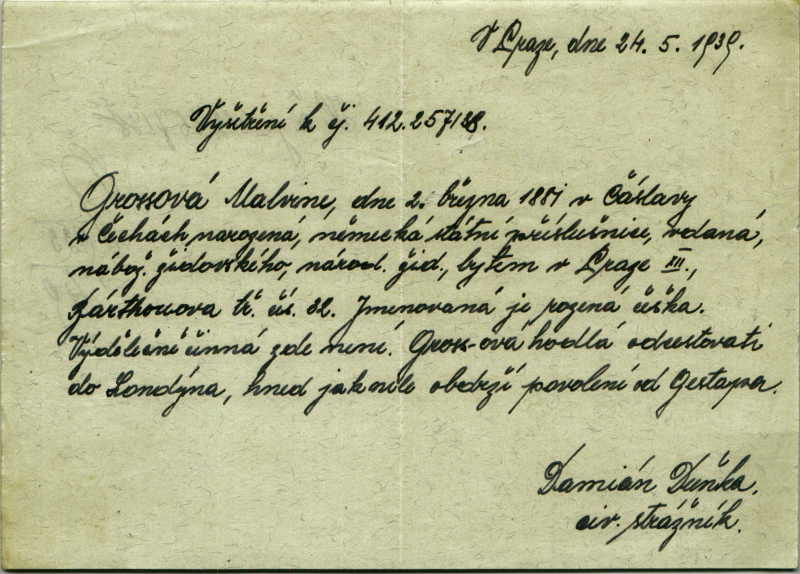 V Praze, dne 24. 5. 1939.
Vyšetření k čj. 412.257/38.
Grossová Malvine, dne 2. března 1881 v Čáslavy
v Čechách narozená, německá státní příslušnice, vdaná,
nábož. židovského, národ. žid., bytem v Praze XII.,
tř. čís. 32. Jmenovaná je rozená češka.
Výdělečně činná zde není. Gross-ová hodlá odcestovati
do Londýna, hned jakmile obdrží povolení od Gestapa.
Damián Duňka.
civ. strážník.